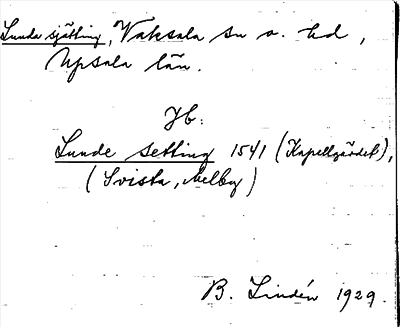 Lunde sjätting, Vaksala sn o. hd,
Upsala län.
Jb:
Lunde setting 1541 (Kapellgärdet),
(Svista, Melby)
B. Lindén 1929.